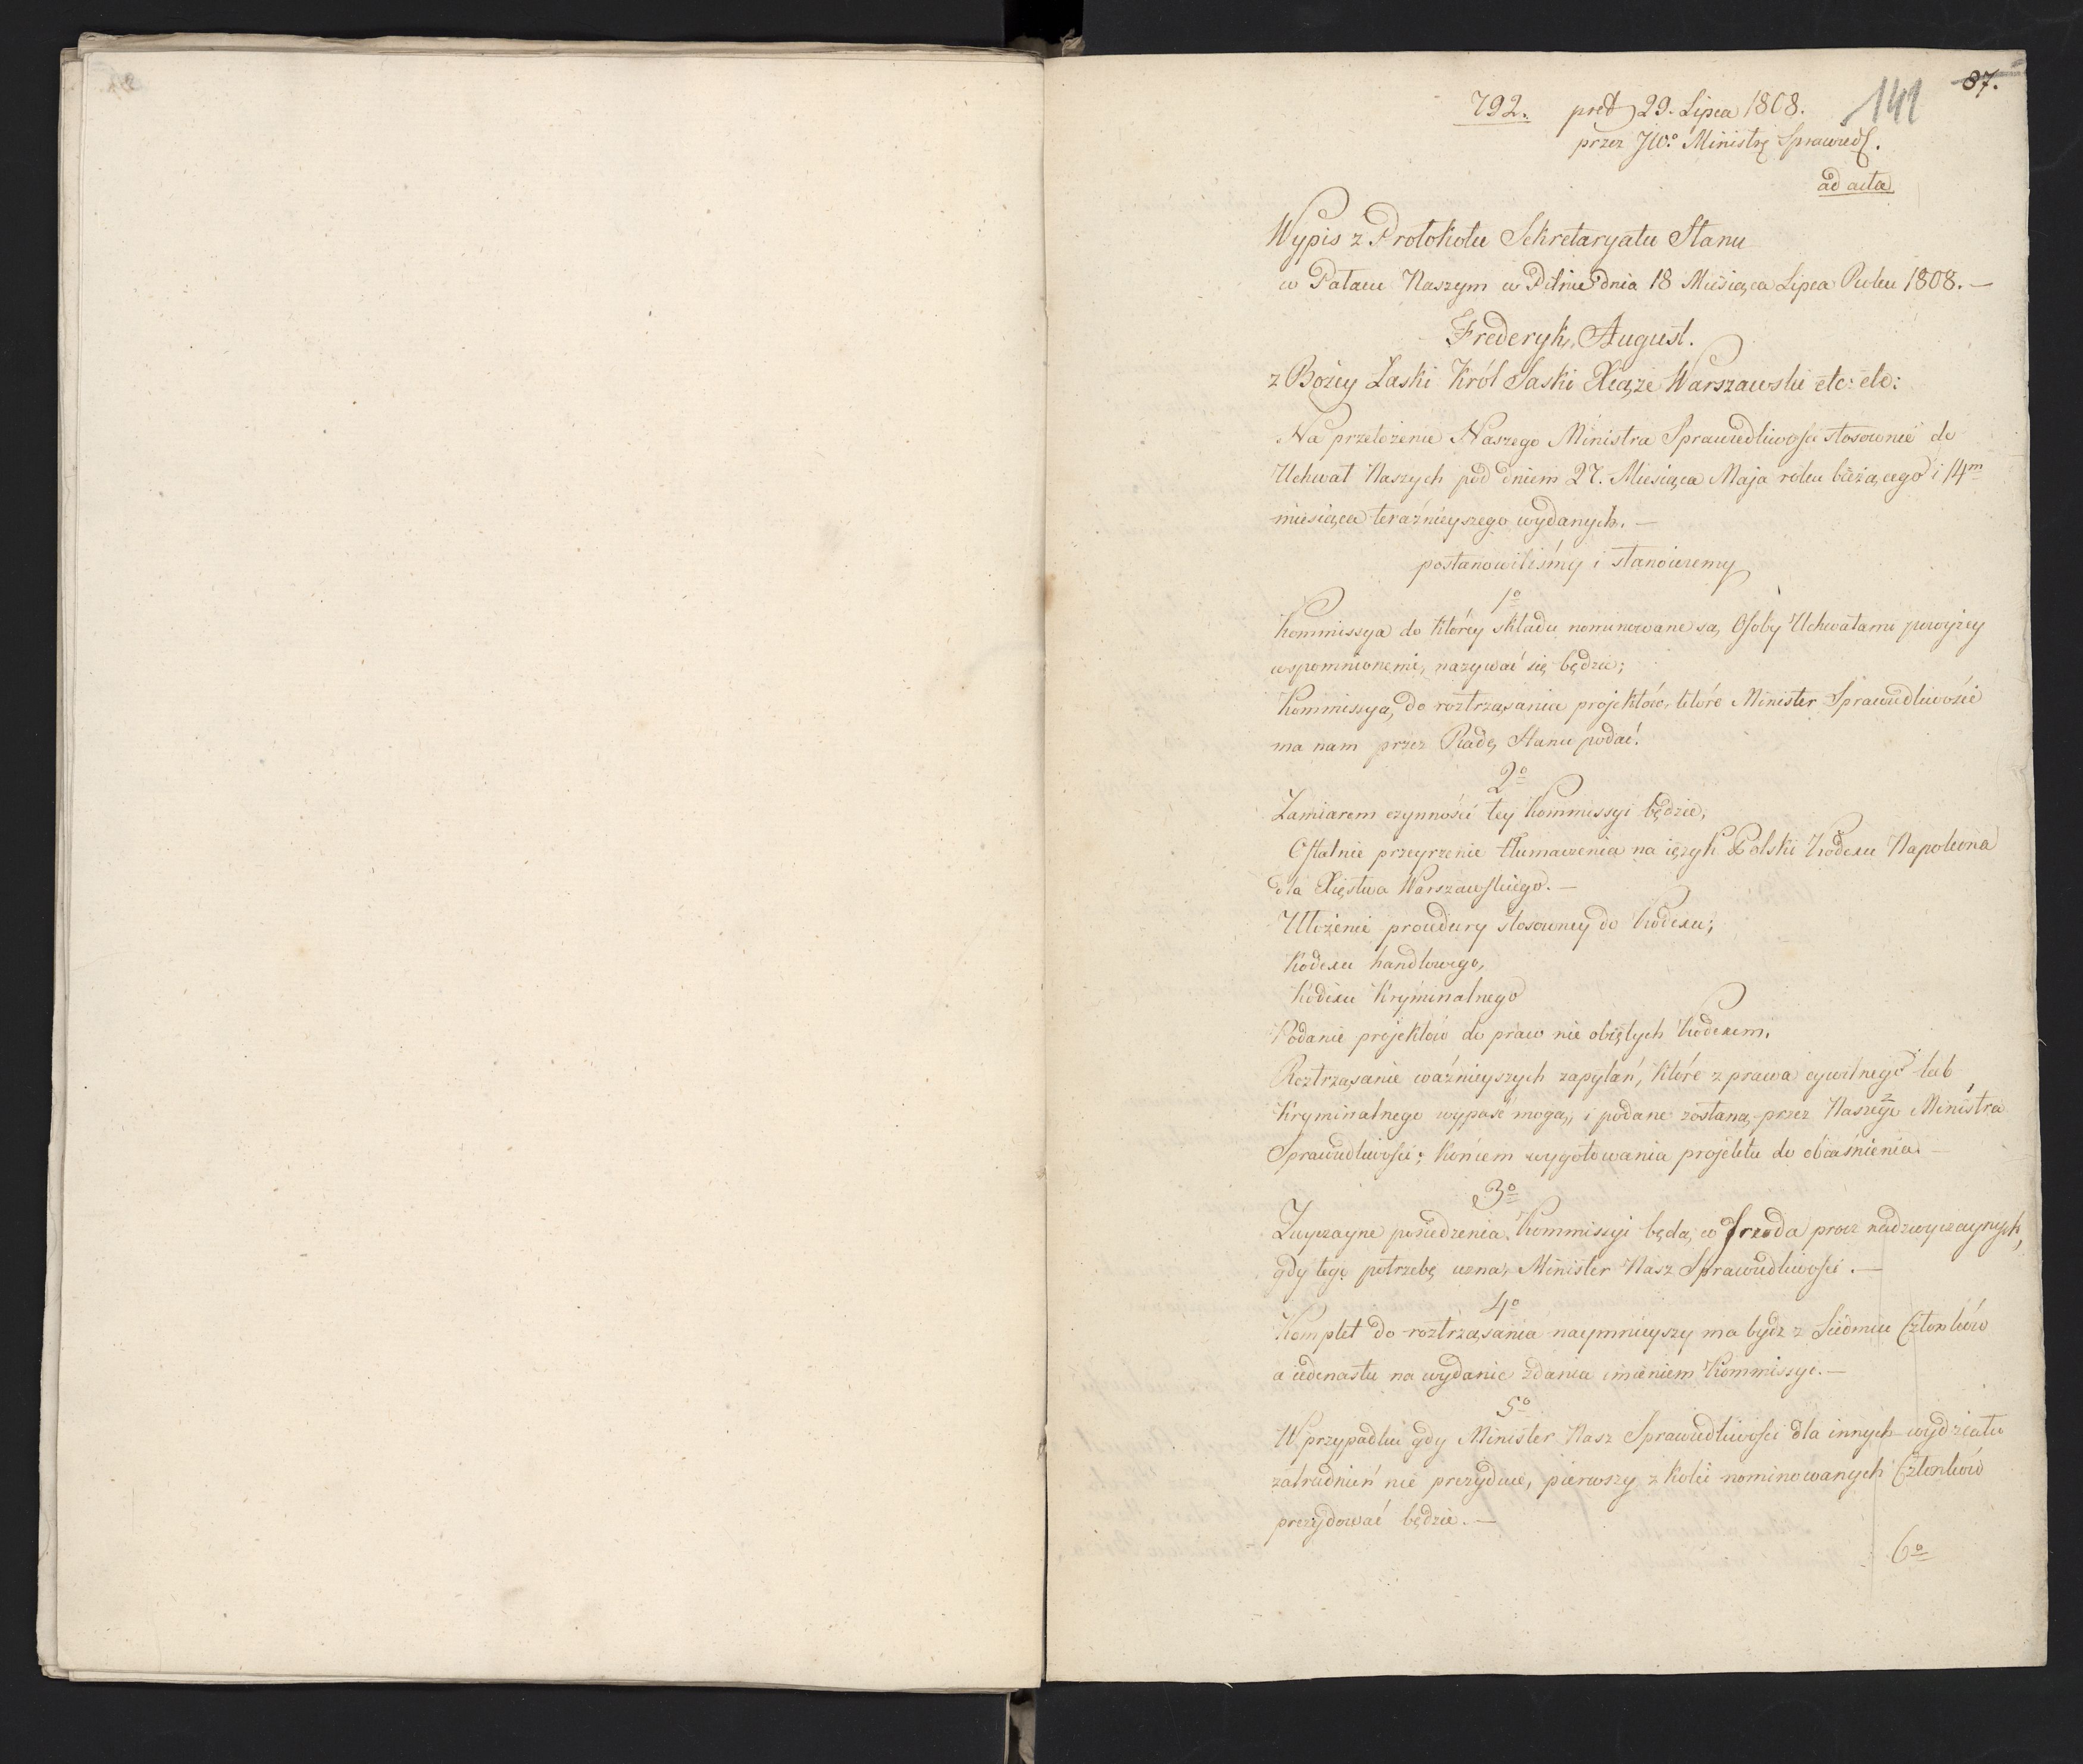 87.
141
792. prd 29. Lipca 1808.
przez JW.º Ministrę Sprawiedl.
ad acta
Wypis z Protokołu Sekretaryatu Stanu
w Pałacu Naszym w Pilnie dnia 18 Miesiąca Lipca Roku 1808. —
Frederyk, August.
z Bożey Łaski Król Saski Xiąże Warszawski etc: etc:
Na przełożenie Naszego Ministra Sprawiedliwości stosownie do
Uchwał Naszych pod dniem 27. Miesiąca Maja roku bieżącego i 14m
miesiąca teraźnieyszego wydanych. —
postanowiliśmy i stanowiemy
1º
Kommissya do którey składu nominowane są, Osoby Uchwałami powyżey
wspomnionemi, nazywać się będzie;
Kommissya, do roztrząsania projektów, które Minister Sprawiedliwości
ma nam przez Radę Stanu podać.
2º
Zamiarem czynności tey Kommissyi będzie,
Ostatnie przeyrzenie tłumaczenia na ięzyk Polski Kodexu Napoleona
dla Xięstwa Warszawskiego. —
Ułożenie procedury stosowney do Kodexu;
Kodexu handlowego,
Kodexu Kryminalnego
Podanie projektów do praw nie obiętych Kodexem,
Roztrząsanie ważnieyszych zapytań, które z prawa cywilnego lub
Kryminalnego wypaść mogą, i podane zostaną przez Naszego Ministra
Sprawiedliwości; Końcem wygotowania projektu do obiaśnienia. —
3º
Zwyczayne posiedzenia Kommissyi będą, co Srzoda procz nadzwyczaynych,
gdy tego potrzebę uzna, Minister Nasz Sprawiedliwości. —
4º
Komplet do roztrząsania naymnieyszy ma bydz z Siedmiu Członków
a iedenastu na wydanie zdania imieniem Kommissyi. —
5º
W przypadku gdy Minister Nasz Sprawiedliwości dla innych wydziału
zatrudnień nie prezyduie, pierwszy z kolei nominowanych Członków
prezydować będzie. —
6º